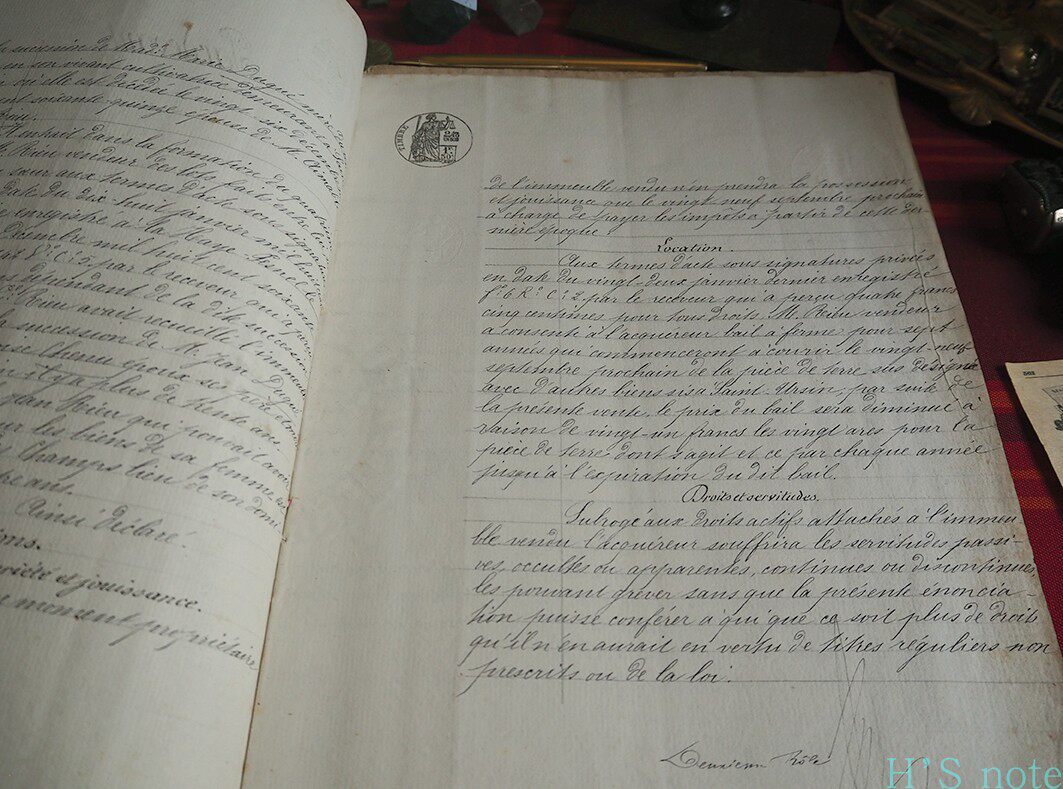 succession de Mad.e Marie Dugué
en son vivant cultivatrice demeurant à
où elle est décédée le vingt six décembre
soixante quinze épouse de M.
Il entrait dans la formation du
M. Rieu vendeur des lots faits entre
sœur aux termes d'acte sous
date du dix huit janvier mil
enregistré à la Haye Pesnel le
décembre mil huit cent soix
C.e 2. par le receveur qui a
dépendant de la dite succession
Rieu avait recueilli l'immeuble
la succession de M. Jean Dugué
époux ses père et mère
il y a plus de trente ans
Jean Rieu qui pouvait avoir
sur les biens de sa femme est
Champs lieu de son domi
ans.
Ainsi déclaré.
priété et jouissance.
moment propriétaire
TIMBRE
1F
50C
de l'immeuble vendu n'en prendra la possession
et jouissance que le vingt neuf septembre prochain
à charge de payer les impots à partir de cette der-
nière époque.
Location.
Aux termes d'acte sous signatures privées
en date du vingt-deux janvier dernier enregistré
f.o 6 R.o C.e 2. par le receveur qui a perçu quatre francs
cinq centimes pour tous droits. M. Rieu vendeur
a consenti à l'acquéreur bail à ferme pour sept
années qui commenceront à courir le vingt-neuf
septembre prochain de la pièce de terre sus désignée
avec d'autres biens sis à Saint-Ursin; par suite de
la présente vente, le prix du bail sera diminué à
raison de vingt-un francs les vingt ares pour la
pièce de terre dont s'agit et ce par chaque année
jusqu'à l'expiration du dit bail.
Droits et servitudes.
Subrogé aux droits actifs attachés à l'immeu-
ble vendu l'acquéreur souffrira les servitudes passi-
ves, occultes ou apparentes, continues ou discontinues
les pouvant gréver sans que la présente énoncia-
tion puisse conférer à qui que ce soit plus de droits
qu'il n'en aurait en vertu de titres réguliers non
prescrits ou de la loi.
Deuxième Rôle
H'S note